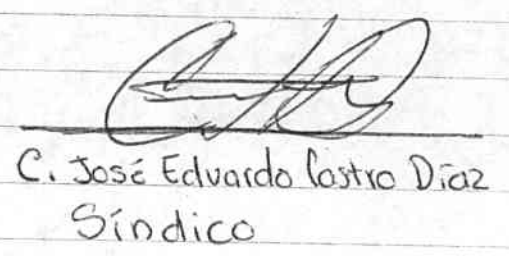 C. José Eduardo Castro Díaz
Síndico